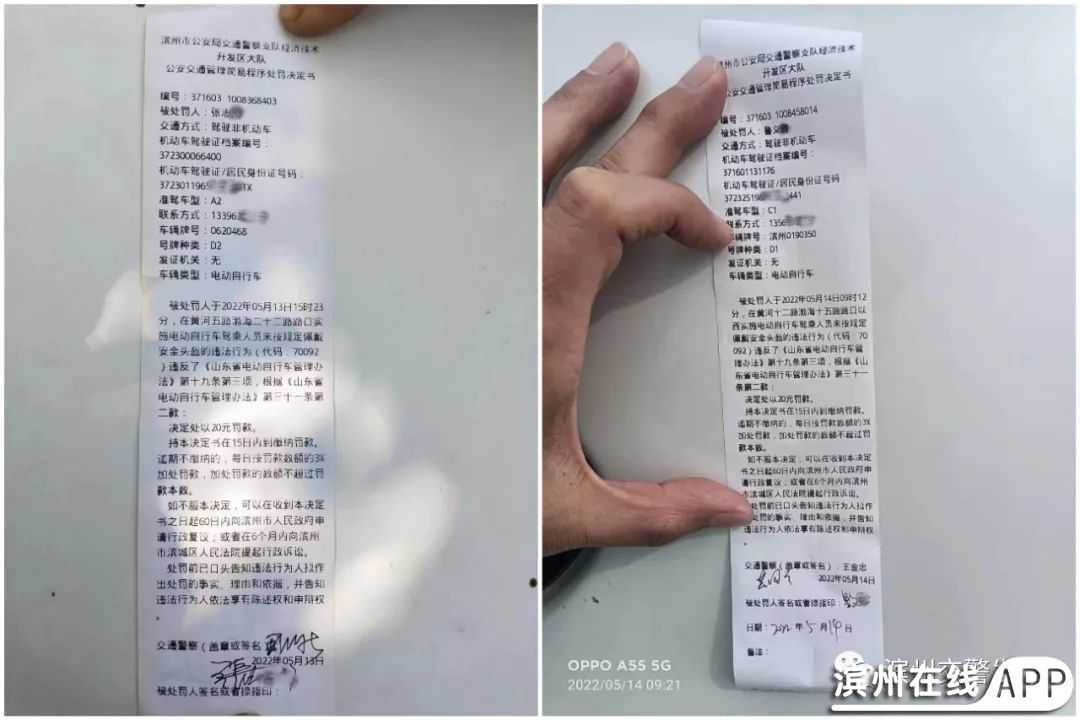 滨州市公安局交通警察支队经济技术
开发区大队
公安交通管理简易程序处罚决定书
编号：371603 1008368403
被处罚人：张志
交通方式：驾驶非机动车
机动车驾驶证档案编号：
372300066400
机动车驾驶证/居民身份证号码：
3723011965 1X
准驾车型：A2
联系方式：13396
车辆牌号：0620468
号牌种类：D2
发证机关：无
车辆类型：电动自行车
被处罚人于2022年05月13日15时23
分，在黄河五路渤海二十二路路口实
施电动自行车驾乘人员未按规定佩戴
安全头盔的违法行为（代码：70092
）违反了《山东省电动自行车管理办
法》第十九条第三项，根据《山东省
电动自行车管理办法》第三十一条第
二款：
决定处以20元罚款。
持本决定书在15日内到缴纳罚款。
逾期不缴纳的，每日按罚款数额的3%
加处罚款，加处罚款的数额不超过罚
款本数。
如不服本决定，可以在收到本决定
书之日起60日内向滨州市人民政府申
请行政复议；或者在6个月内向滨州
市滨城区人民法院提起行政诉讼。
处罚前已口头告知违法行为人拟作
出处罚的事实、理由和依据，并告知
违法行为人依法享有陈述权和申辩权
交通警察（盖章或签名
2022年05月13日
被处罚人签名或者捺指印：
滨州市公安局交通警察支队经济技术
开发区大队
公安交通管理简易程序处罚决定书
编号：371603 1008458014
被处罚人：
交通方式：驾驶非机动车
机动车驾驶证档案编号：
371601131176
机动车驾驶证/居民身份证号码
37232519 441
准驾车型：C1
联系方式：135
车辆牌号：滨州0190350
号牌种类：D1
发证机关：无
车辆类型：电动自行车
被处罚人于2022年05月14日09时12
分，在黄河十二路渤海十五路路口以
西实施电动自行车驾乘人员未按规定
佩戴安全头盔的违法行为（代码：70
092）违反了《山东省电动自行车管
理办法》第十九条第三项，根据《山
东省电动自行车管理办法》第三十一
条第二款：
决定处以20元罚款。
持本决定书在15日内到缴纳罚款。
逾期不缴纳的，每日按罚款数额的3%
加处罚款，加处罚款的数额不超过罚
款本数。
如不服本决定，可以在收到本决定
书之日起60日内向滨州市人民政府申
请行政复议；或者在6个月内向滨州
市滨城区人民法院提起行政诉讼。
处罚前已口头告知违法行为人拟作
出处罚的事实、理由和依据，并告知
违法行为人依法享有陈述权和申辩权
交通警察（盖章或签名）：王金忠
2022年05月14日
被处罚人签名或者捺指印：
日期：2022年5月14日
备注：
OPPO A55 5G
2022/05/14 09:21
滨州交警
滨州在线APP